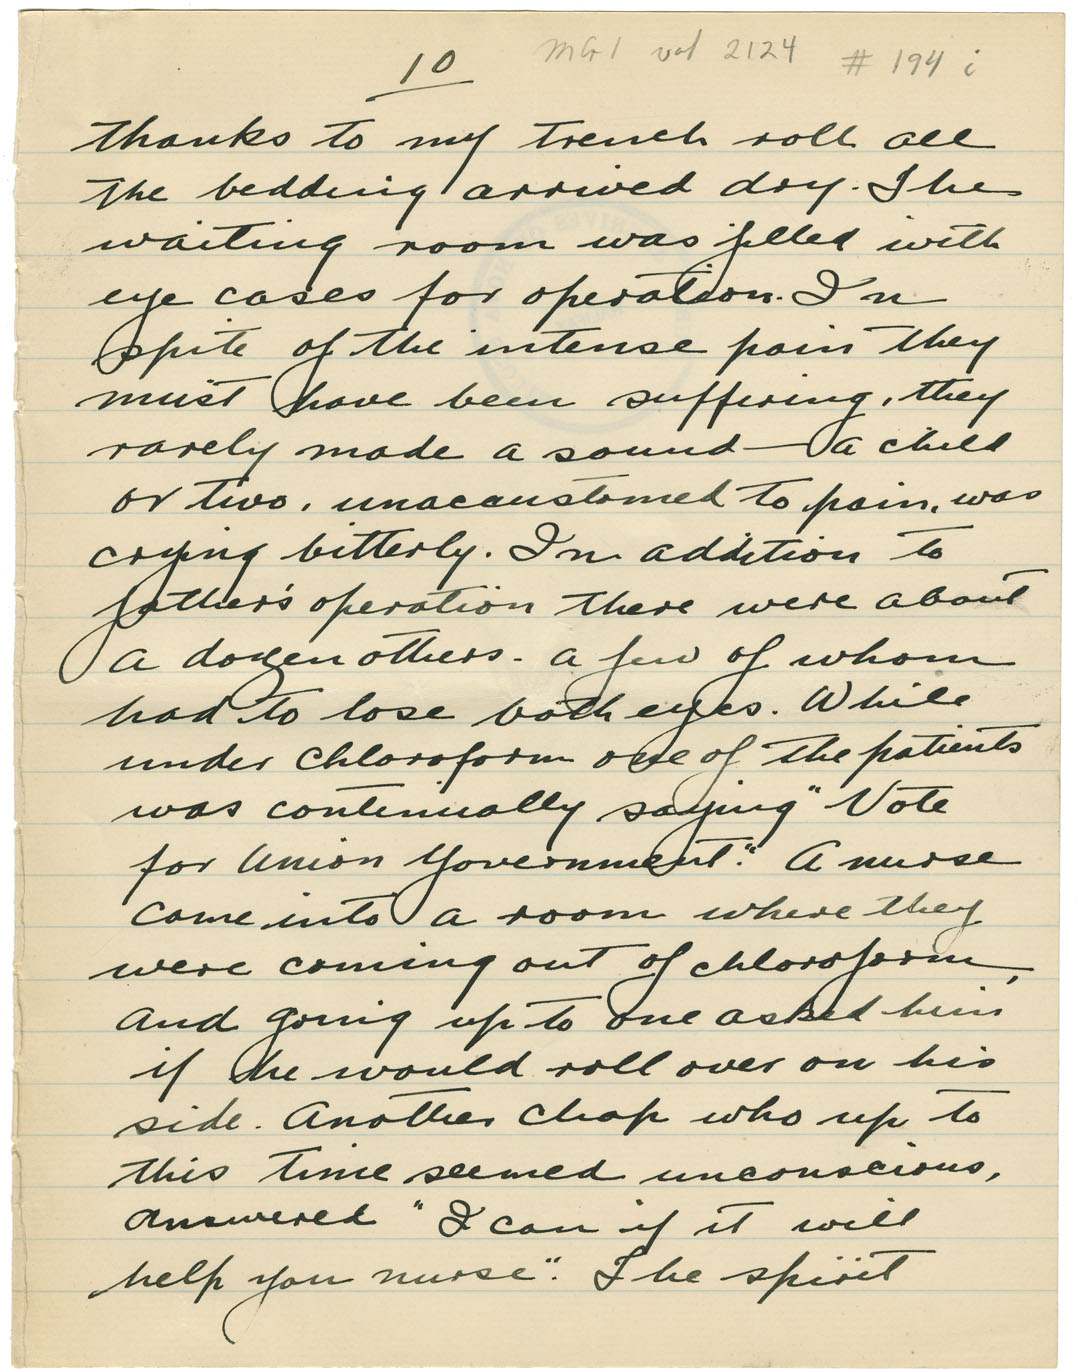 10
MG1 vol 2124 # 194 i
thanks to my trench roll all
the bedding arrived dry. The
waiting room was filled with
eye cases for operation. In
spite of the intense pain they
must have been suffering, they
rarely made a sound — a child
or two, unaccustomed to pain, was
crying bitterly. In addition to
father's operation there were about
a dozen others - a few of whom
had to lose both eyes. While
under chloroform one of the patients
was continually saying "Vote
for Union Government." A nurse
came into a room where they
were coming out of chloroform,
and going up to one asked him
if he would roll over on his
side. Another chap who up to
this time seemed unconscious,
answered "I can if it will
help you nurse". The spirit